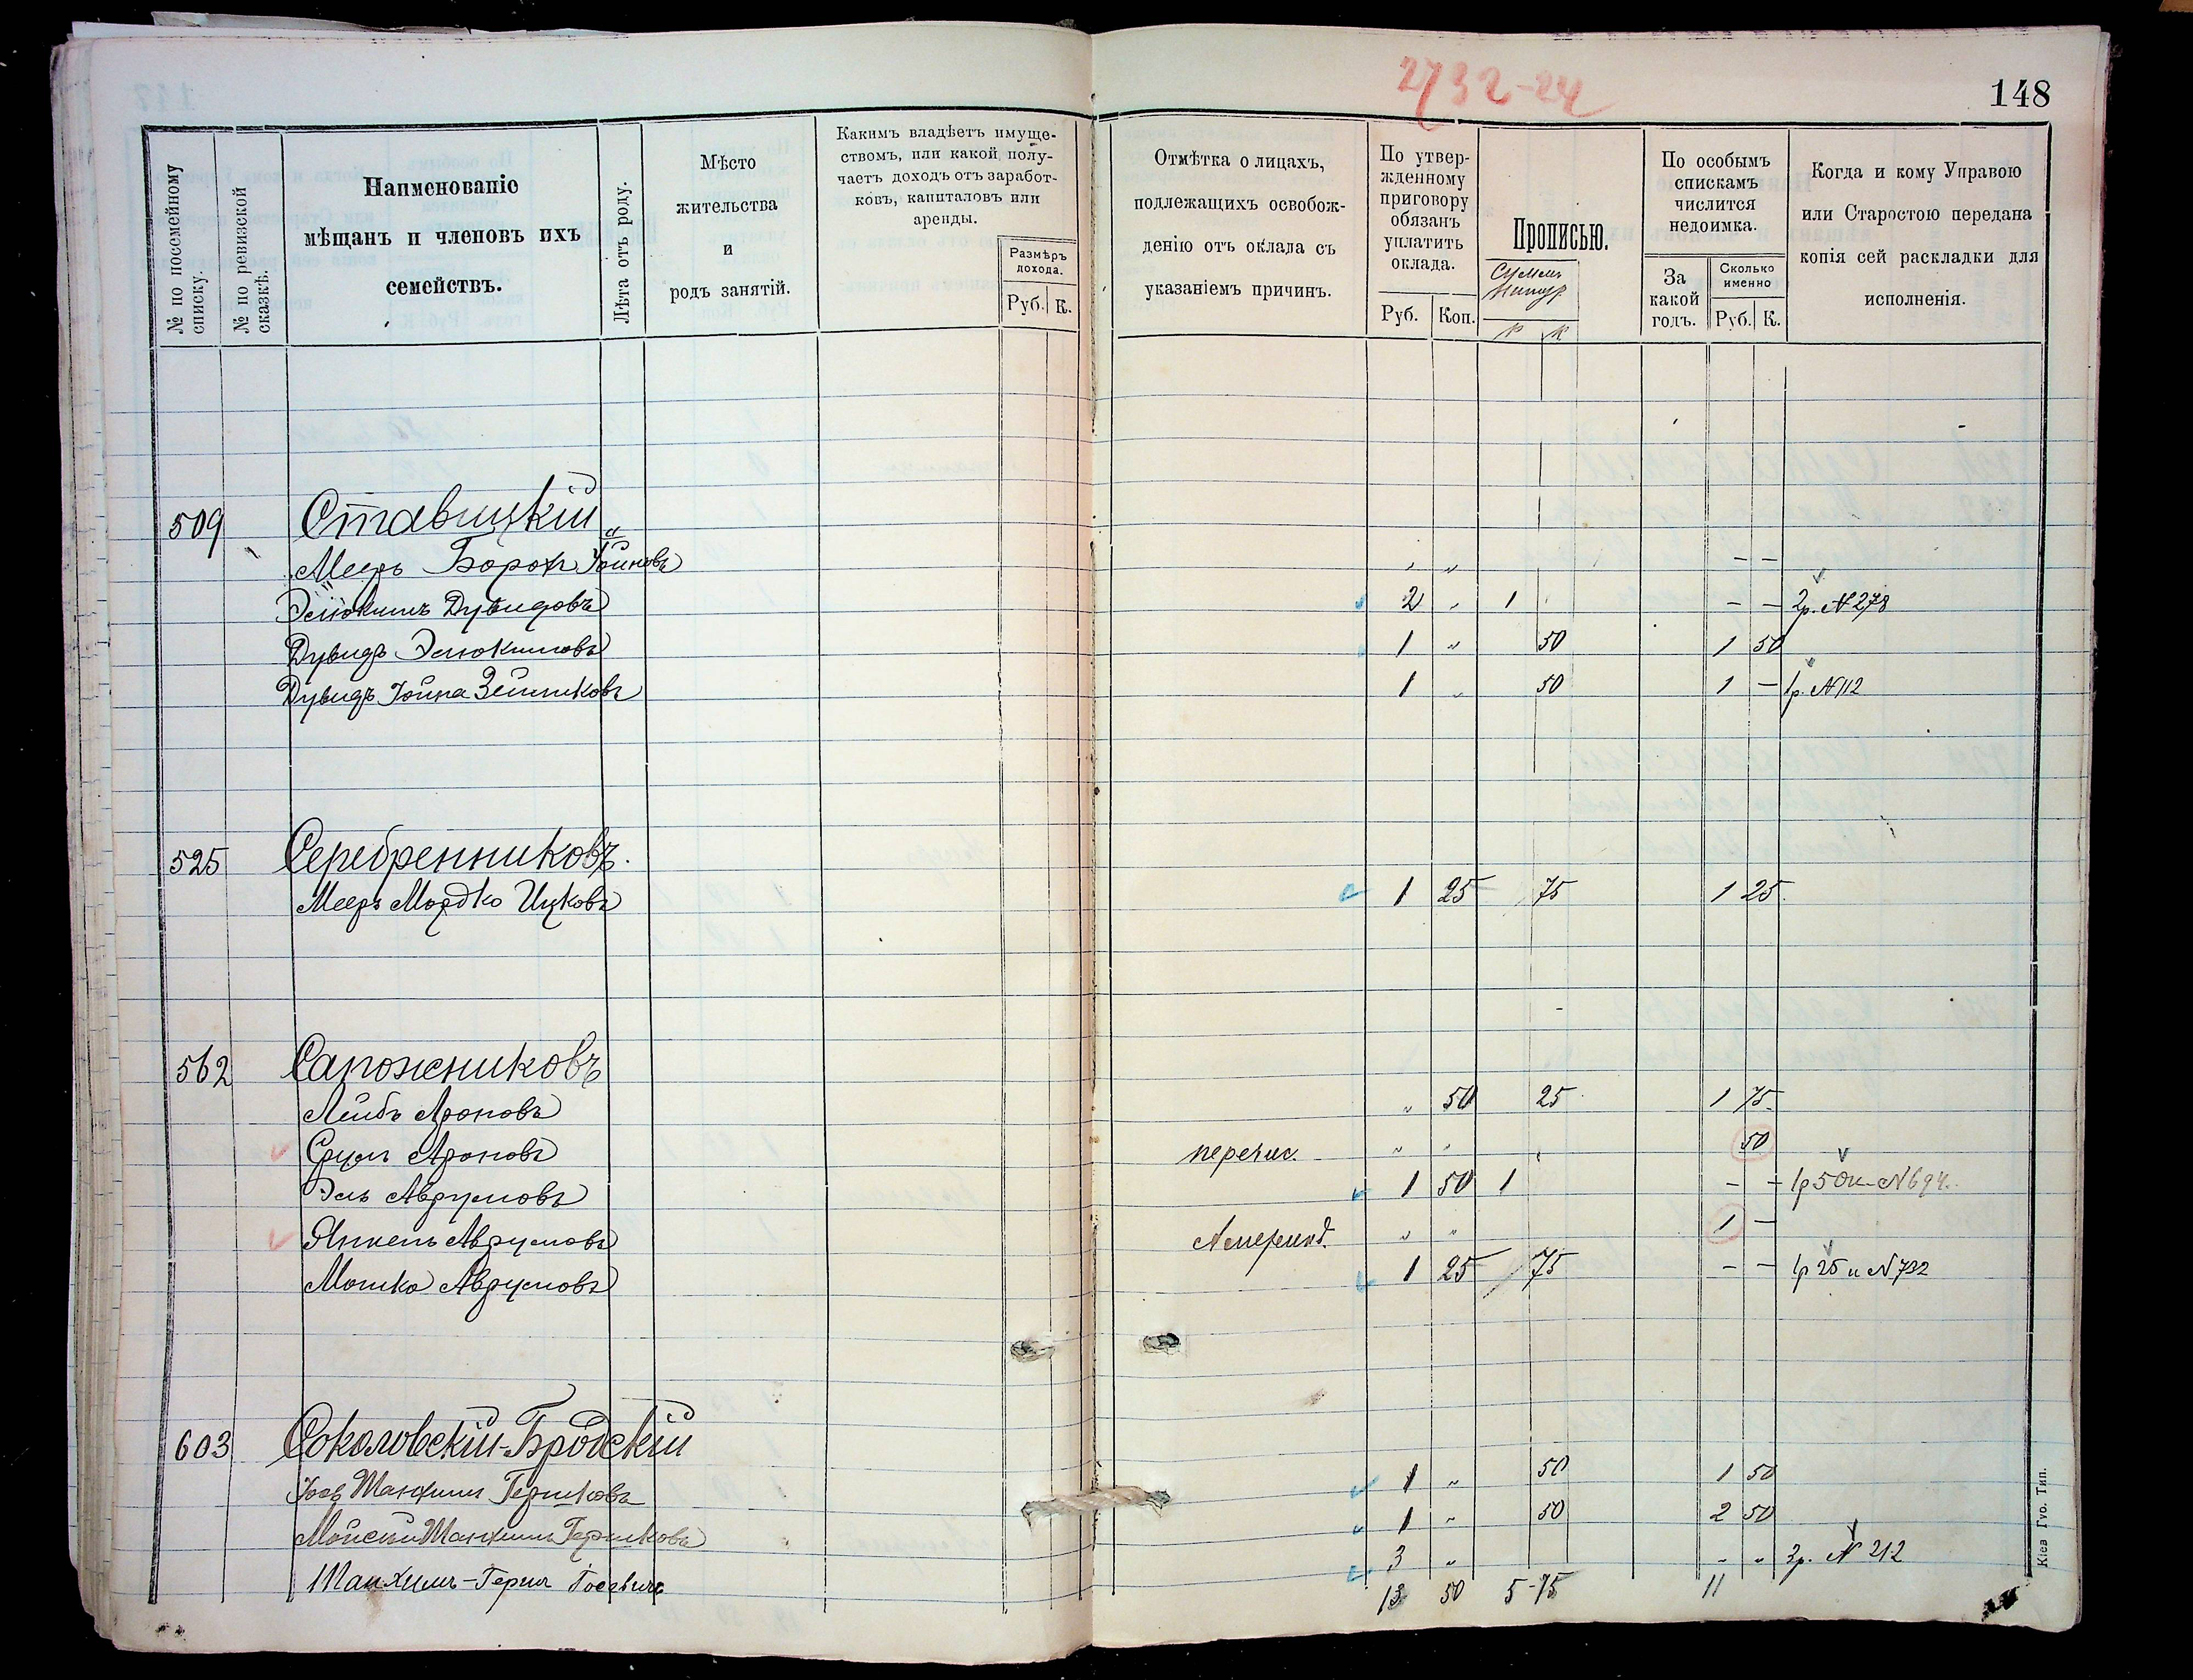 2732-24
148
№ по посемейному списку.
№ по ревизской сказкѣ.
Наименованіе мѣщанъ и членовъ ихъ семействъ.
Лѣта отъ роду.
Мѣсто жительства и родъ занятій.
Какимъ владѣетъ имуществомъ, или какой получаетъ доходъ отъ заработковъ, капиталовъ или аренды.
Размѣръ дохода.
Руб. К.
Отмѣтка о лицахъ, подлежащихъ освобожденію отъ оклада съ указаніемъ причинъ.
По утвержденному приговору обязанъ уплатить оклада.
Руб. Коп.
Прописью.
Р К
По особымъ спискамъ числится недоимка.
За какой годъ.
Сколько именно
Руб. К.
Когда и кому Управою или Старостою передана копія сей раскладки для исполненія.
509 Ставицкій
Мееръ Борохъ Іойновъ " " - -
Эліокимъ Дувидовъ 2 " 1 - - 2р. № 278
Дувидъ Эліокимовъ 1 " 50 1 50
Дувидъ Іойна Зейликовъ 1 " 50 1 - 1р. № 112
525 Серебренниковъ.
Мееръ Мордко Ицковъ 1 25 75 1 25
562 Сапожниковъ
Лейбъ Ароновъ " 50 25 1 75
Сруль Ароновъ перечис. " " 50
Эль Аврумовъ 1 50 1 - - 1р 50к № 694.
Янкель Аврумовъ " " 1 -
Мошко Аврумовъ 1 25 75 - - 1р 25к № 732
603 Соколовскій-Бродскій
Іосъ Манхимъ Гершковъ 1 " 50 1 50
Манхимъ Гершковъ 1 " 50 2 50
Манхимъ-Герш 3 " " " 3р. № 212
13 50 5-75 11
Кіев Гуо. Тип.